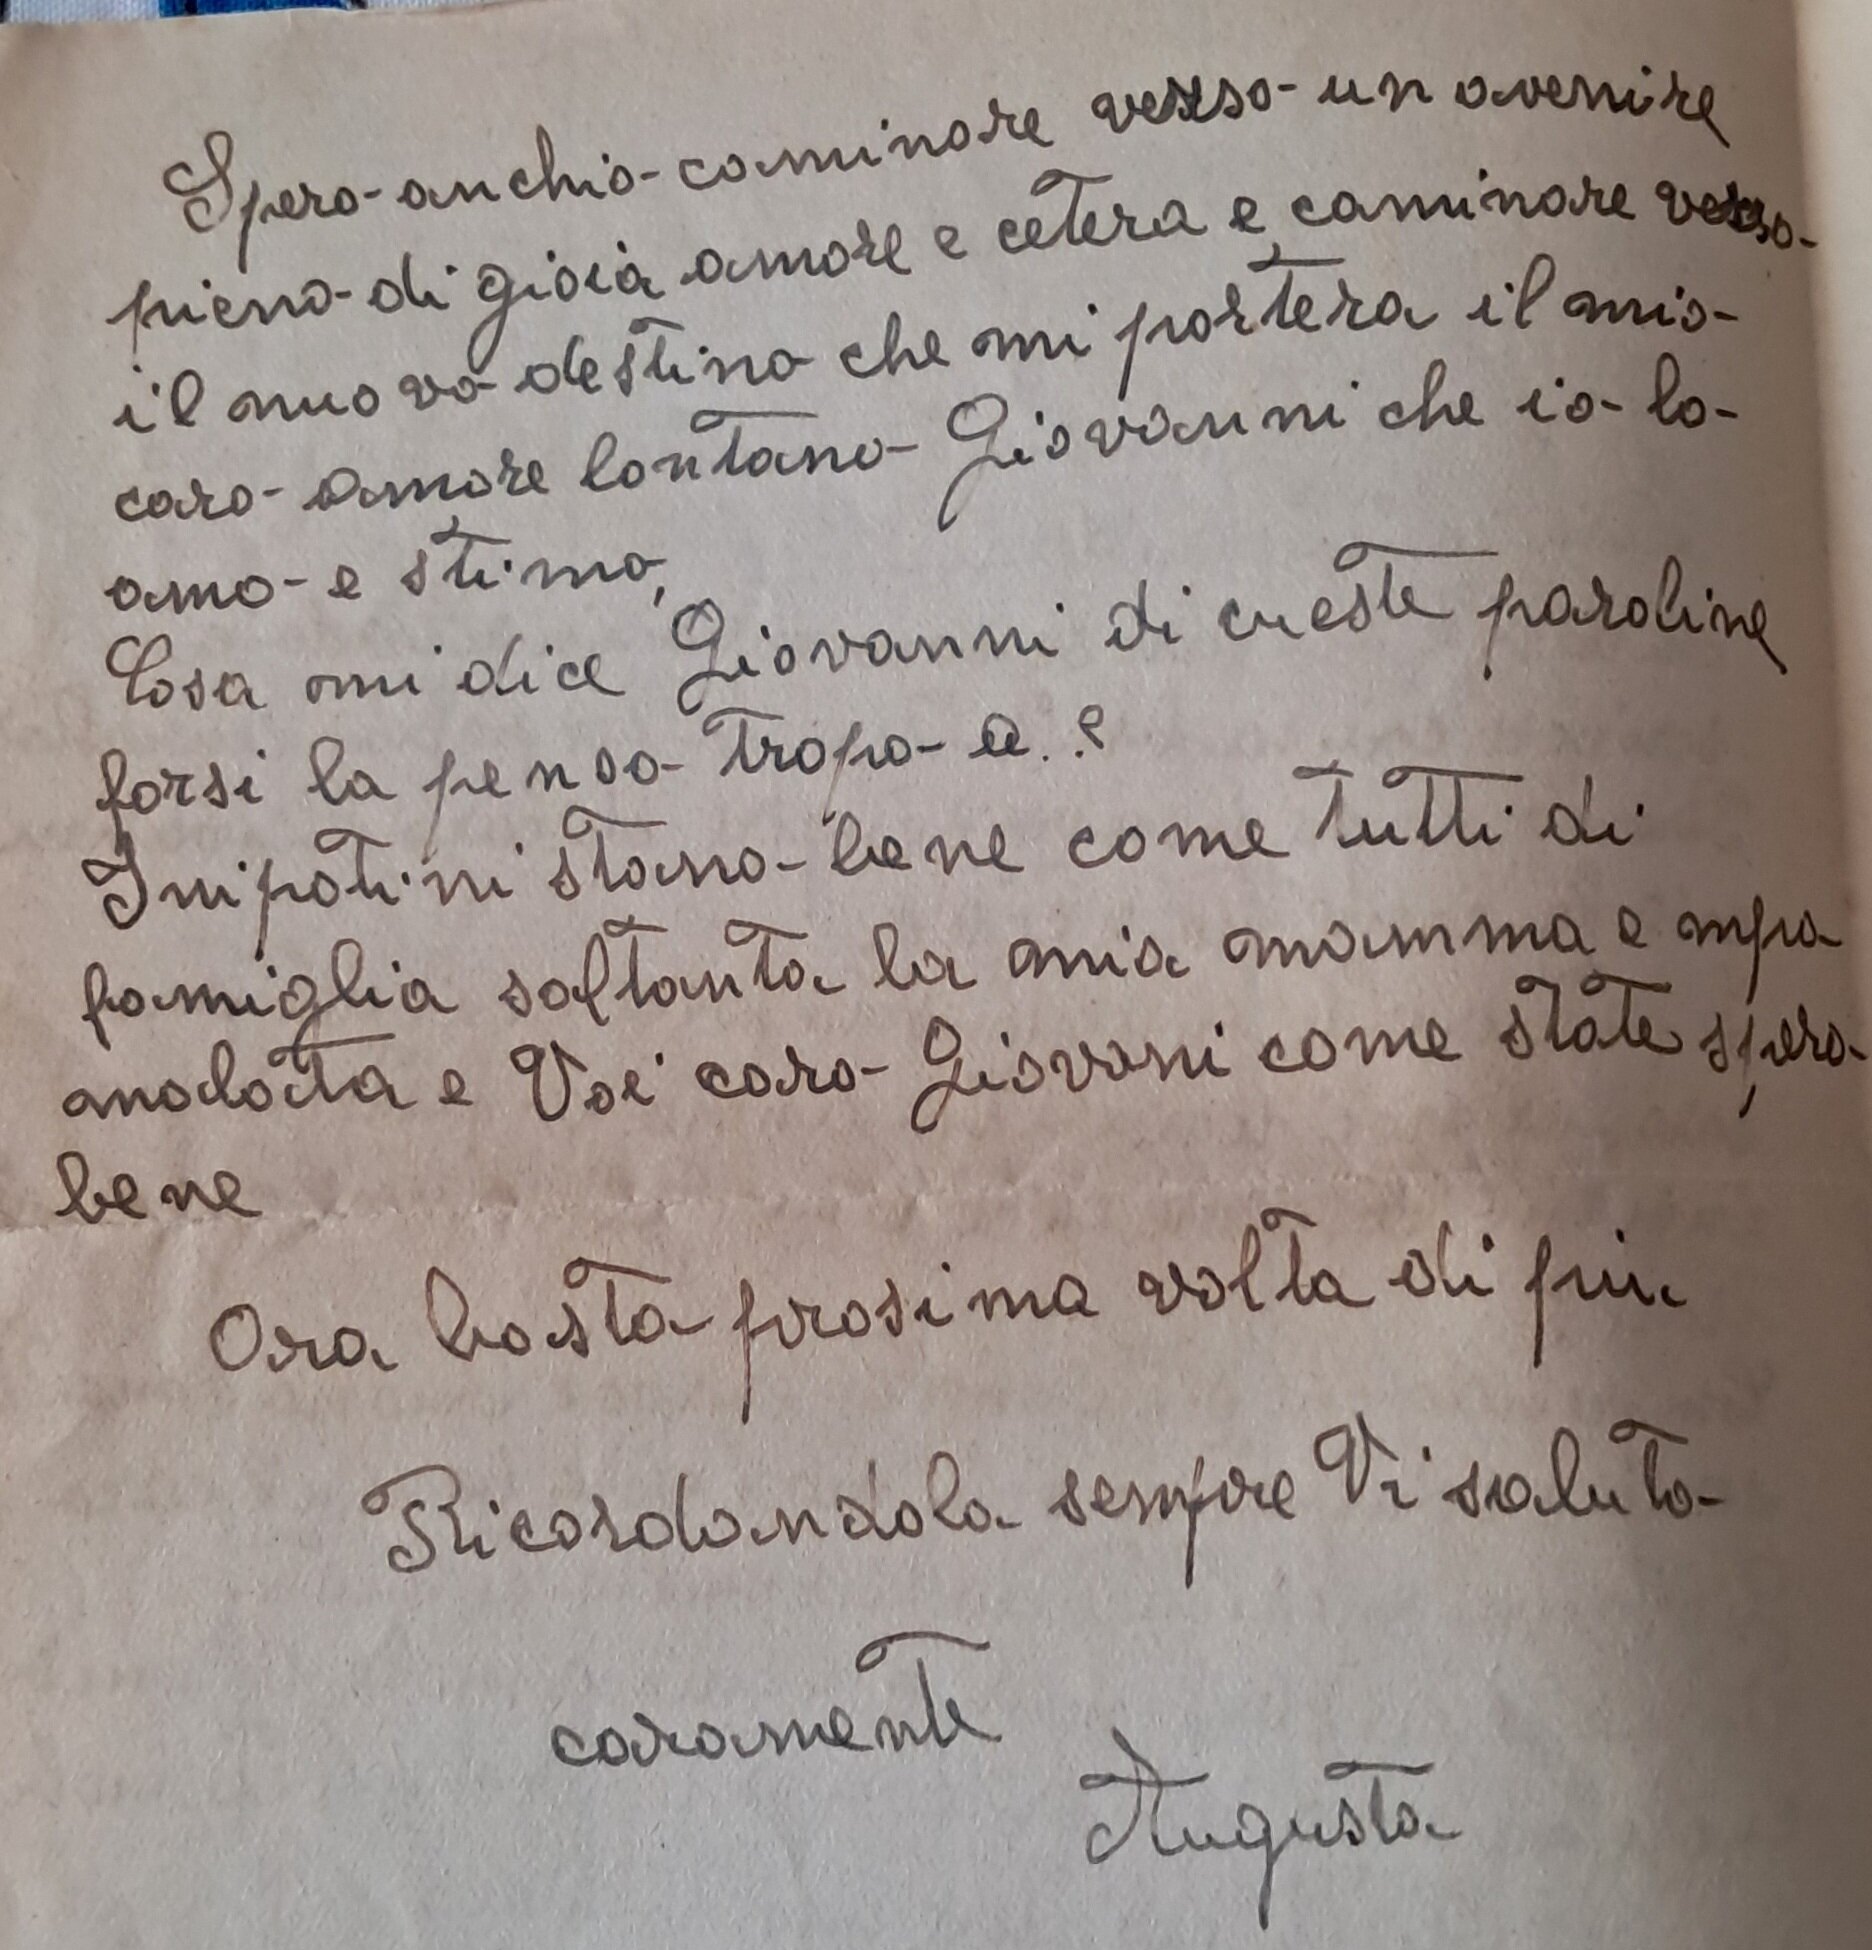 Spero anchio caminare verso un avenire
pieno di gioia amore e cetera e caminare verso
il nuovo destino che mi portera il mio
caro amore lontano Giovanni che io lo
amo e stimo,
Cosa mi dice Giovanni di cueste paroline
forsi la penso tropo a..?
I nipotini stano bene come tutti di
famiglia soltanta la mia mamma e mpo
malata e Voi caro Giovani come state spero
bene
Ora basta prosima volta di piu
Ricordandola sempre Vi saluto
caramente
Augusta